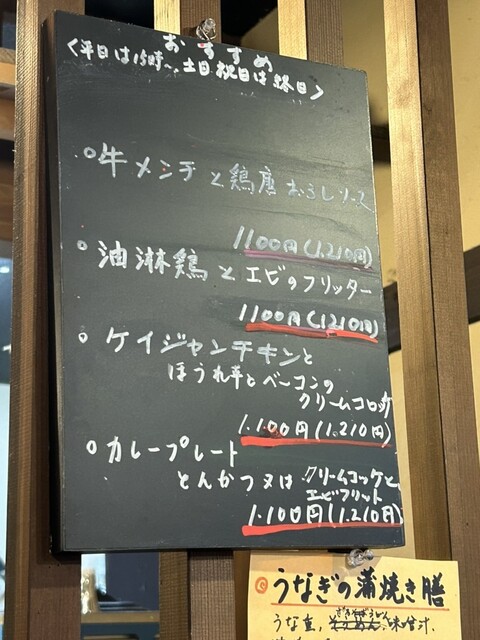 おすすめ
<平日は15時〜、土日祝日は終日>
○牛メンチと鶏唐おろしソース
1100円(1,210円)
○油淋鶏とエビのフリッター
1100円(1,210円)
○ケイジャンチキンと
ほうれ草とベーコンの
クリームコロッケ
1.100円(1,210円)
○カレープレート
とんかつ又は クリームコッケと
エビフリット
1.100円(1,210円)
うなぎの蒲焼き膳
うな重、そうめん、味噌汁、